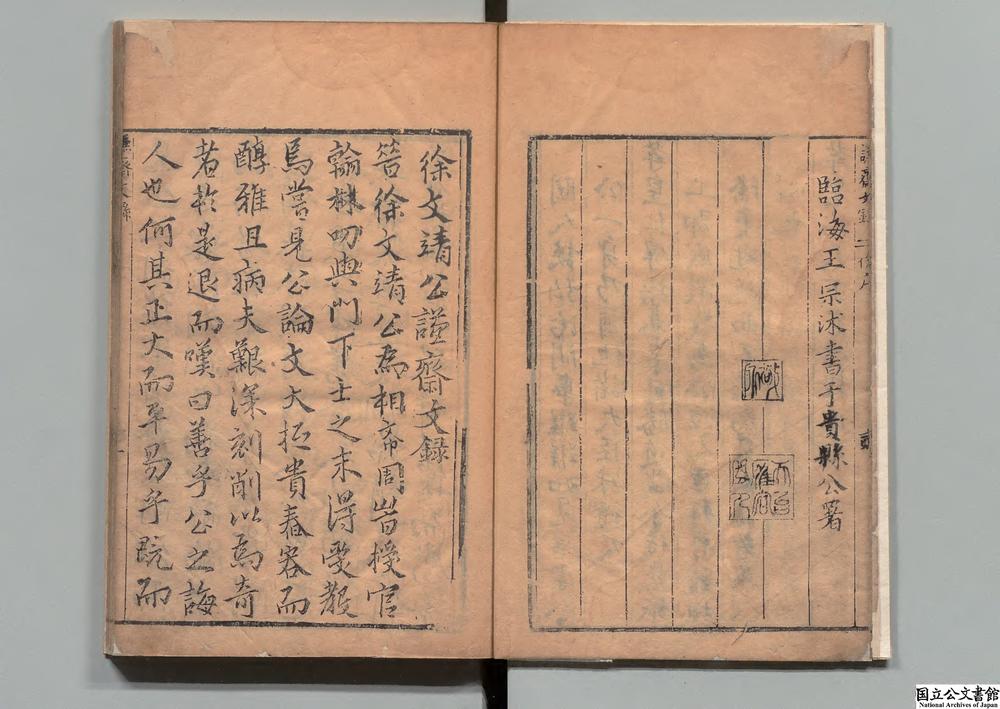 臨海王宗沐書于貴縣公署
徐文靖公謙齋文録
昔徐文靖公為相帝周時授官
翰林叨輿門下士之末得受教
焉嘗見公論文大抵貴舂容而
醇雅且病夫艱深刻削以為奇
者於是退而嘆曰善乎公之誨
人也何其正大而平易乎既而
国立公文書館
National Archives of Japan